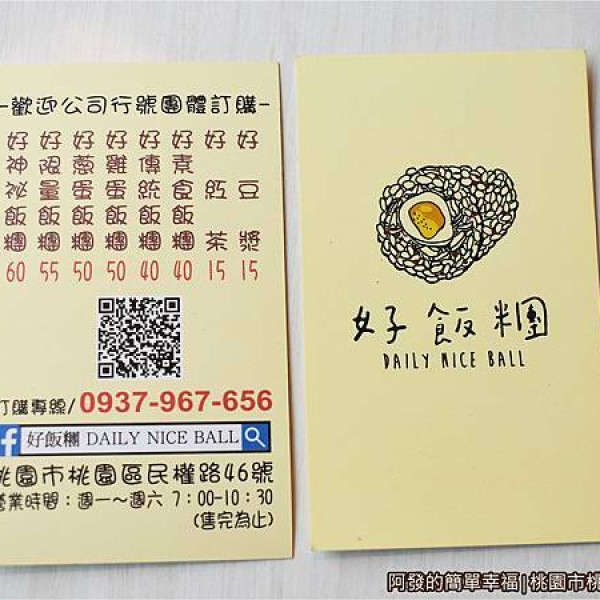 -歡迎公司行號團體訂購-
好神祕飯糰 60
好限量飯糰 55
好蔥蛋飯糰 50
好雞蛋飯糰 50
好傳統飯糰 40
好素食飯糰 40
好紅茶 15
好豆漿 15
訂購專線/0937-967-656
f 好飯糰 DAILY NICE BALL
桃園市桃園區民權路46號
營業時間：週一～週六 7：00-10：30
(售完為止)
好飯糰
DAILY NICE BALL
阿發的簡單幸福|桃園市桃